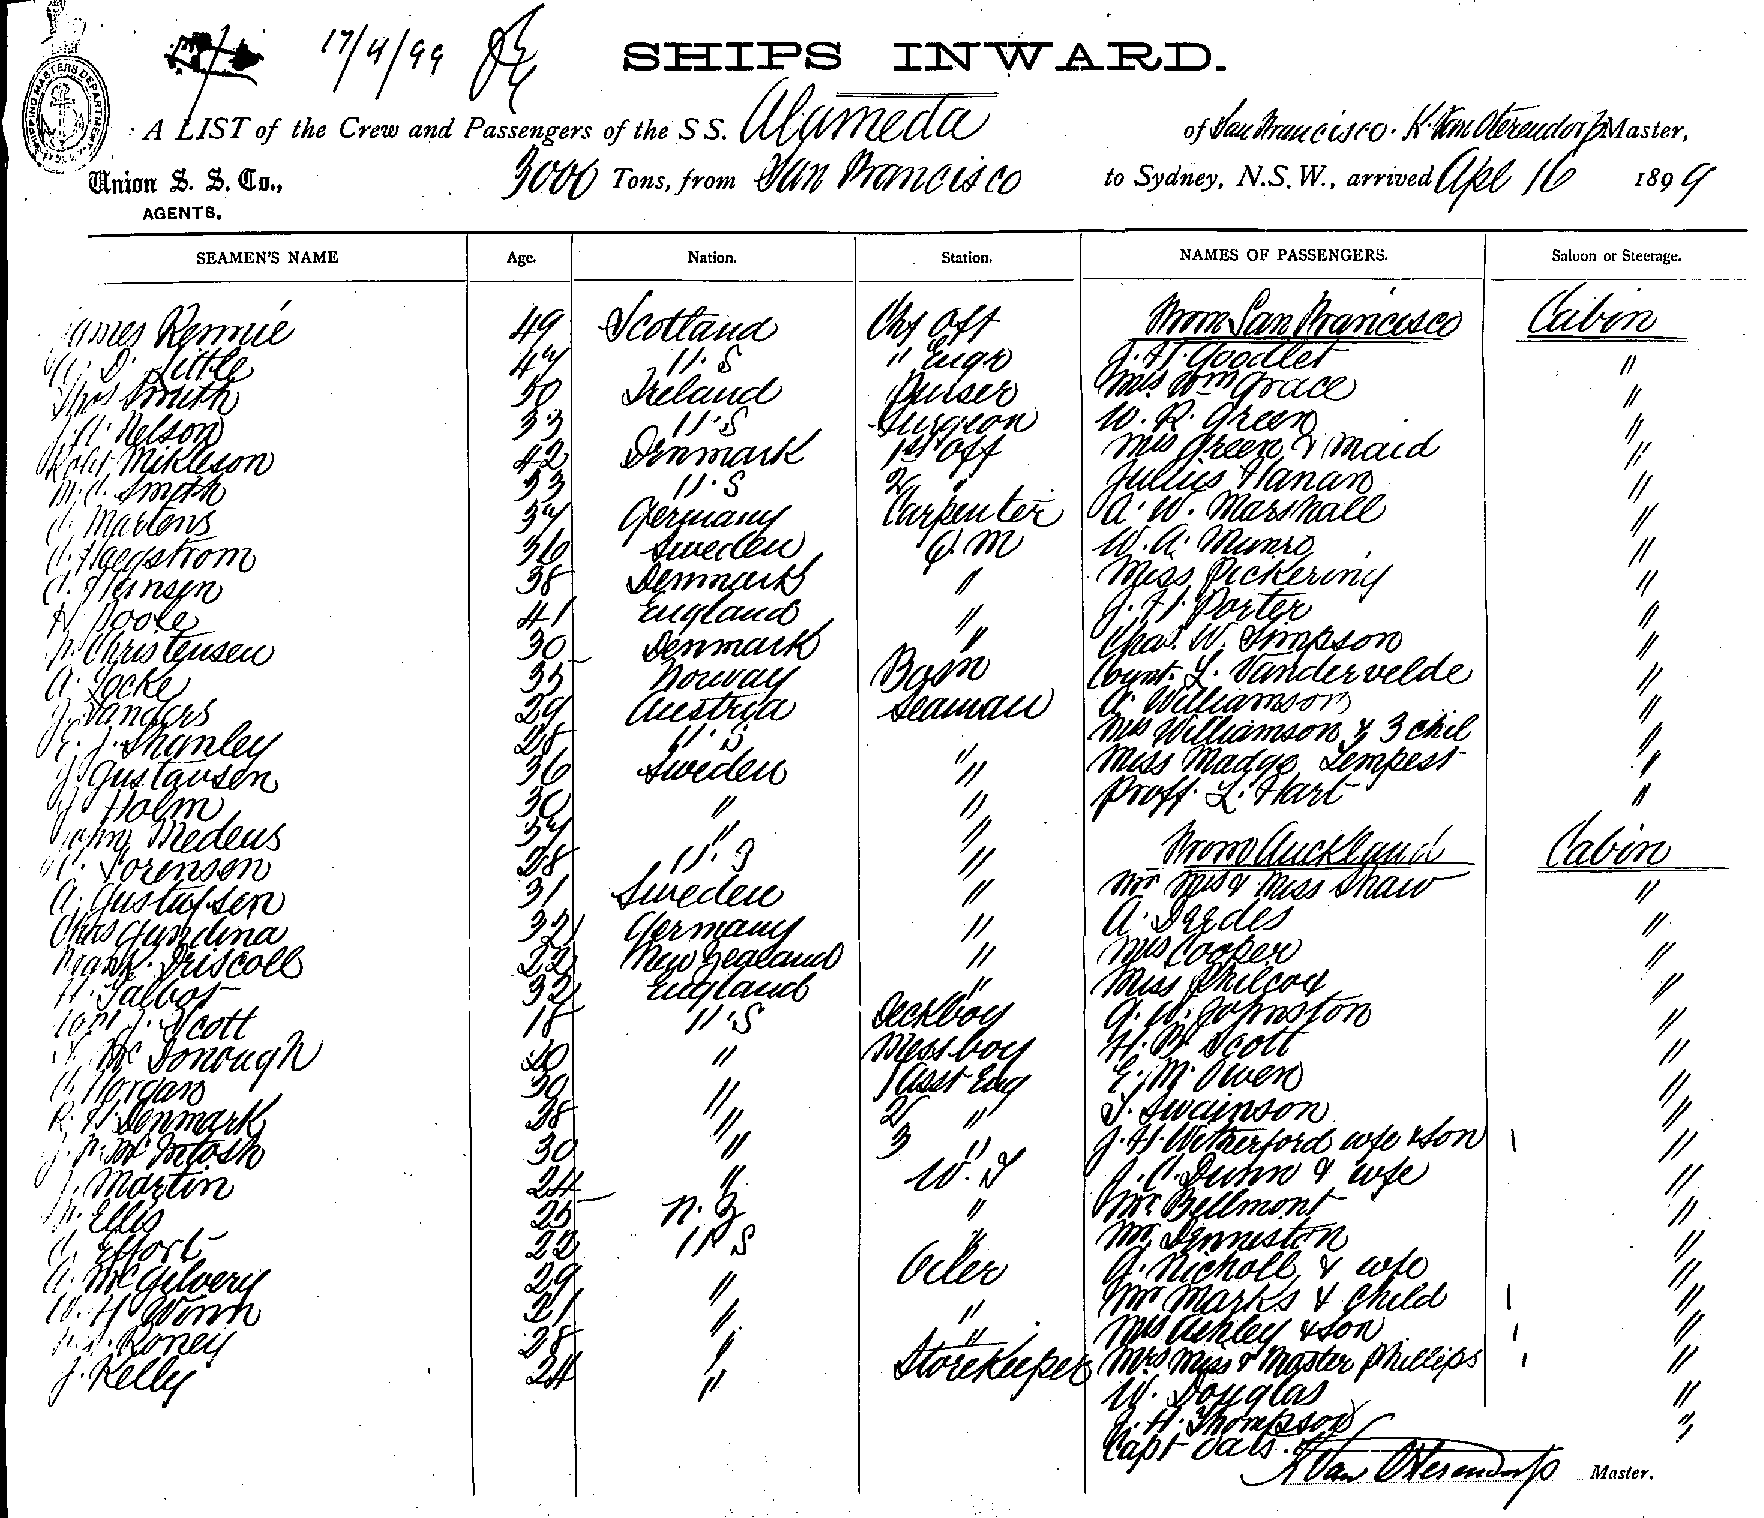 17/4/99
SHIPS INWARD.
SHIPPING MASTERS DEPARTMENT
A LIST of the Crew and Passengers of the S S. Alameda of San Francisco. K. Van Oterendorp Master,
Union S. S. Co., 3000 Tons, from San Francisco to Sydney, N.S.W., arrived Apl 16 1899
AGENTS.
SEAMEN'S NAME Age. Nation. Station. NAMES OF PASSENGERS. Saloon or Steerage.
James Rennie 49 Scotland Chf Off From San Francisco Cabin
D. Little 47 U.S " Engr J. H. Goodlet "
Thos Smith 50 Ireland Purser Mrs Wm Grace "
J. A. Nelson 33 U.S Surgeon W. R. Green "
Robt Mikleson 42 Denmark 1st Off Mrs Green & Maid "
M. C. Smith 33 U.S 2 " Julius Hanan "
Martens 37 Germany Carpenter A. W. Marshall "
Haegstrom 36 Sweden Q. M W. A. Munro "
Jensen 38 Denmark " Miss Pickering "
H Poole 41 England " J. H. Porter "
Christensen 30 Denmark " Chas. W. Simpson "
A. Locke 35 Norway Bosn Count. L. Vandervelde "
J. Sanders 29 Austria Seaman A. Williamson "
E. J. Shanley 28 U.S " Mrs Williamson & 3 chil "
J Gustavsen 36 Sweden " Miss Madge Tempest "
J Holm 30 " " Proff. L. Hart "
John Medeus 37 " "
Sorenson 28 U.S " From Auckland Cabin
A. Gustafsen 31 Sweden " Mr Mrs & Miss Shaw "
Chas Gundina 32 Germany " A. Deedes "
Frank Driscoll 22 New Zealand " Mrs Cooper "
H. Talbot 32 England " Miss Philcox "
J. Scott 18 U.S Deckboy A. W. Johnston "
McDonough 20 " Messboy H. B. Scott "
Morgan 30 " 1 Asst Eng E. M. Owen "
R. H. Denmark 38 " 2 " T. Swainson "
J. N. McIntosh 30 " 3 " J. H. Wetherford wfe & son "
J. Martin 24 " W. T J. C. Dunn & wfe "
Ellis 25 N. Z " Mr. Bellmont "
Effort 22 U S " Mr. Denneston "
A. McGilvery 29 " Oiler A. Nicholl & wfe "
W. H Winn 21 " " Mr Marks & Child "
Roney 28 " " Mrs Ashley & son "
J. Kelly 24 " Storekeeper Mrs Miss & Master Phillips "
W. Douglas "
J. H. Thompson "
Capt
K Van Oterendorp Master.